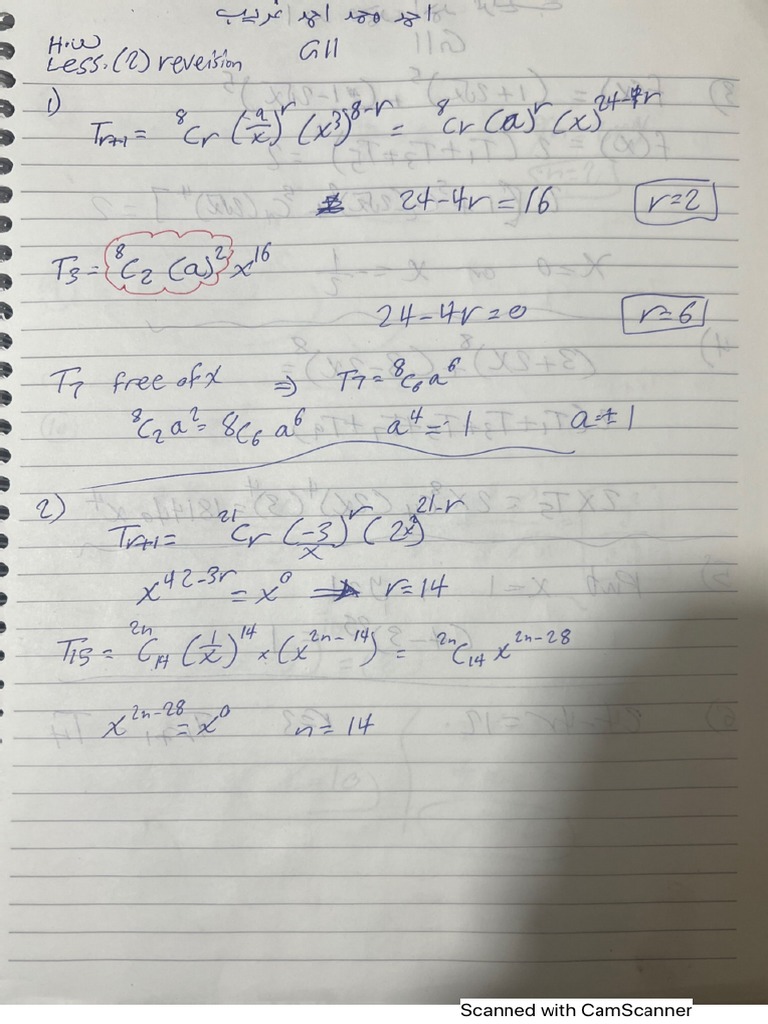 احمد محمد احمد غريب
H.W
Less. (2) reveision G11
1)
Tr+1 = ⁸Cr (-a/x)^r (x³)^8-r = ⁸Cr (a)^r (x)^24-4r
24-4r = 16 r=2
T3 = ⁸C2 (a)² x^16
24-4r=0 r=6
T7 free of x ⇒ T7 = ⁸C6 a⁶
⁸C2 a² = 8C6 a⁶ a⁴ = 1 a=±1
2)
Tr+1 = ²¹Cr (-3/x)^r (2x²)^21-r
x^42-3r = x⁰ ⇒ r=14
T15 = ²ⁿC14 (1/x)^14 × (x^2n-14) = ²ⁿC14 x^2n-28
x^2n-28 = x⁰ n = 14
Scanned with CamScanner